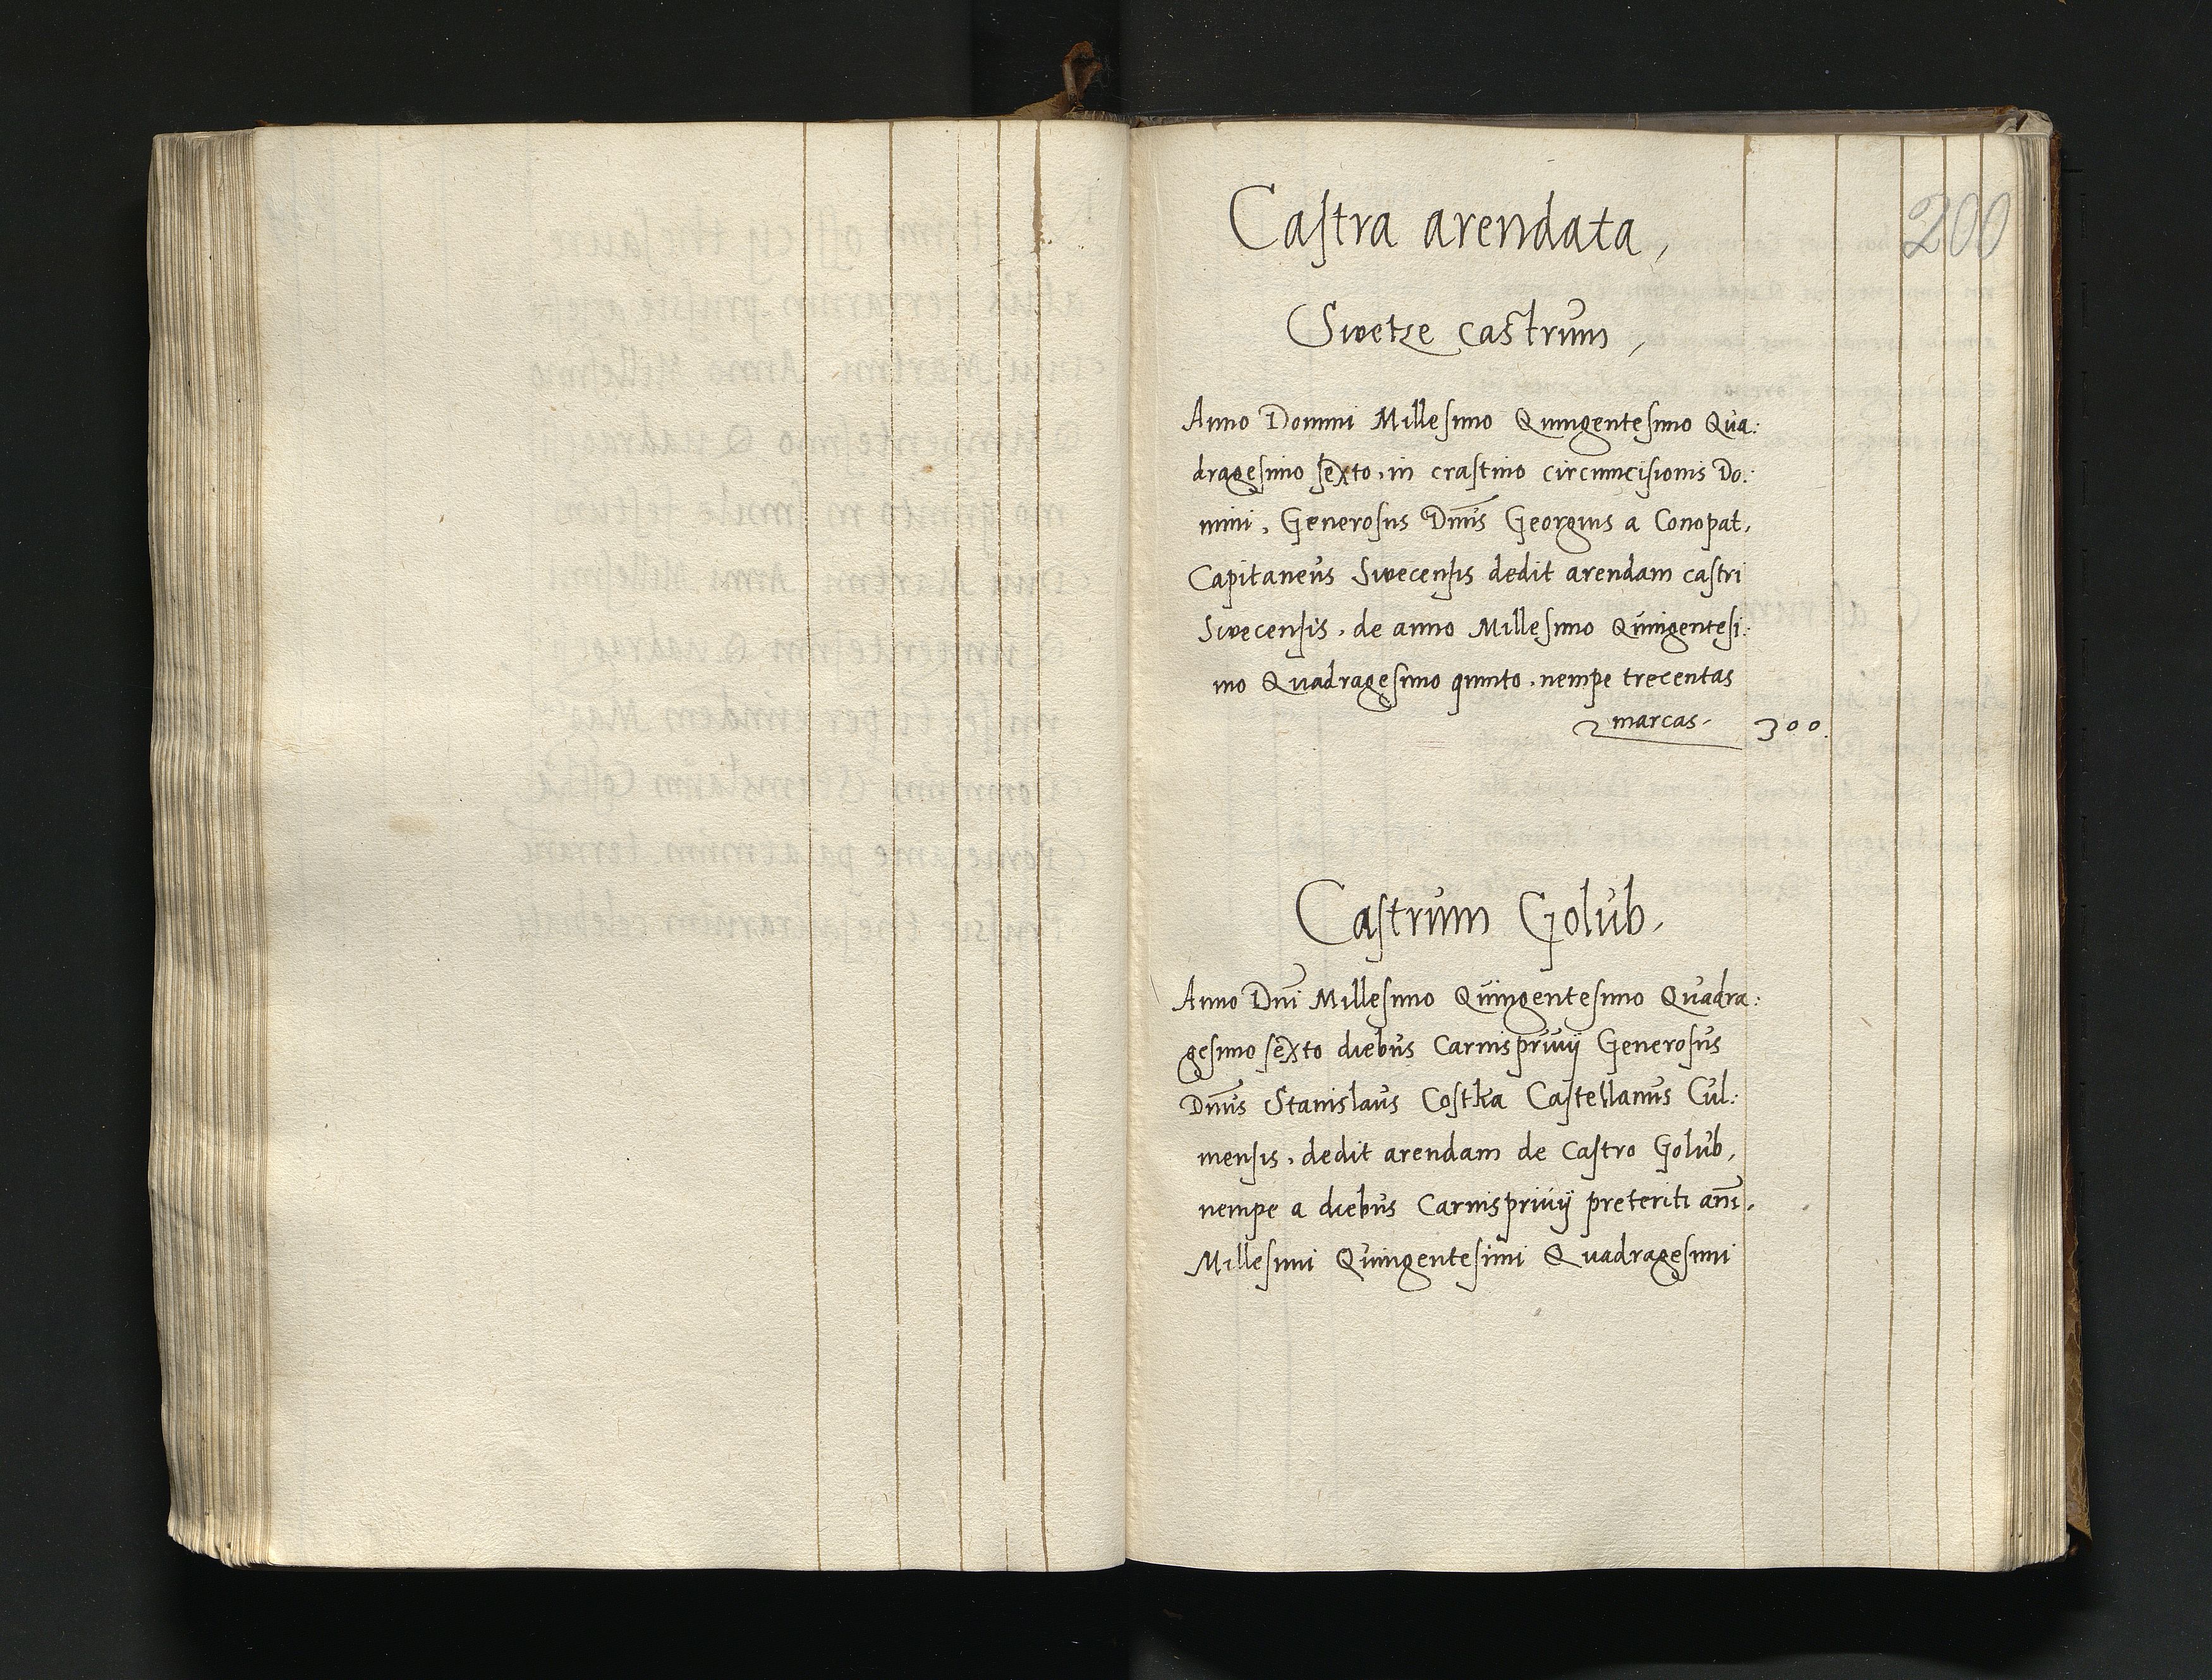 200
Castra arendata,
Swetze castrum,
Anno Domini Millesimo Quingentesimo Qua:
dragesimo sexto, in crastino circumcisionis Do:
mini, Generosus Dnus Georgius a Conopat,
Capitaneus Swecensis dedit arendam castri
Swecensis, de anno Millesimo Quingentesi:
mo Quadragesimo quinto, nempe trecentas
marcas. 300.
Castrum Golub,
Anno Dni Millesimo Quingentesimo Quadra:
gesimo sexto diebus Carnisprivij Generosus
Dnus Stanislaus Costka Castellanus Cul:
mensis, dedit arendam de Castro Golub,
nempe a diebus Carnisprivij preteriti anni,
Millesimi Quingentesimi Quadragesimi